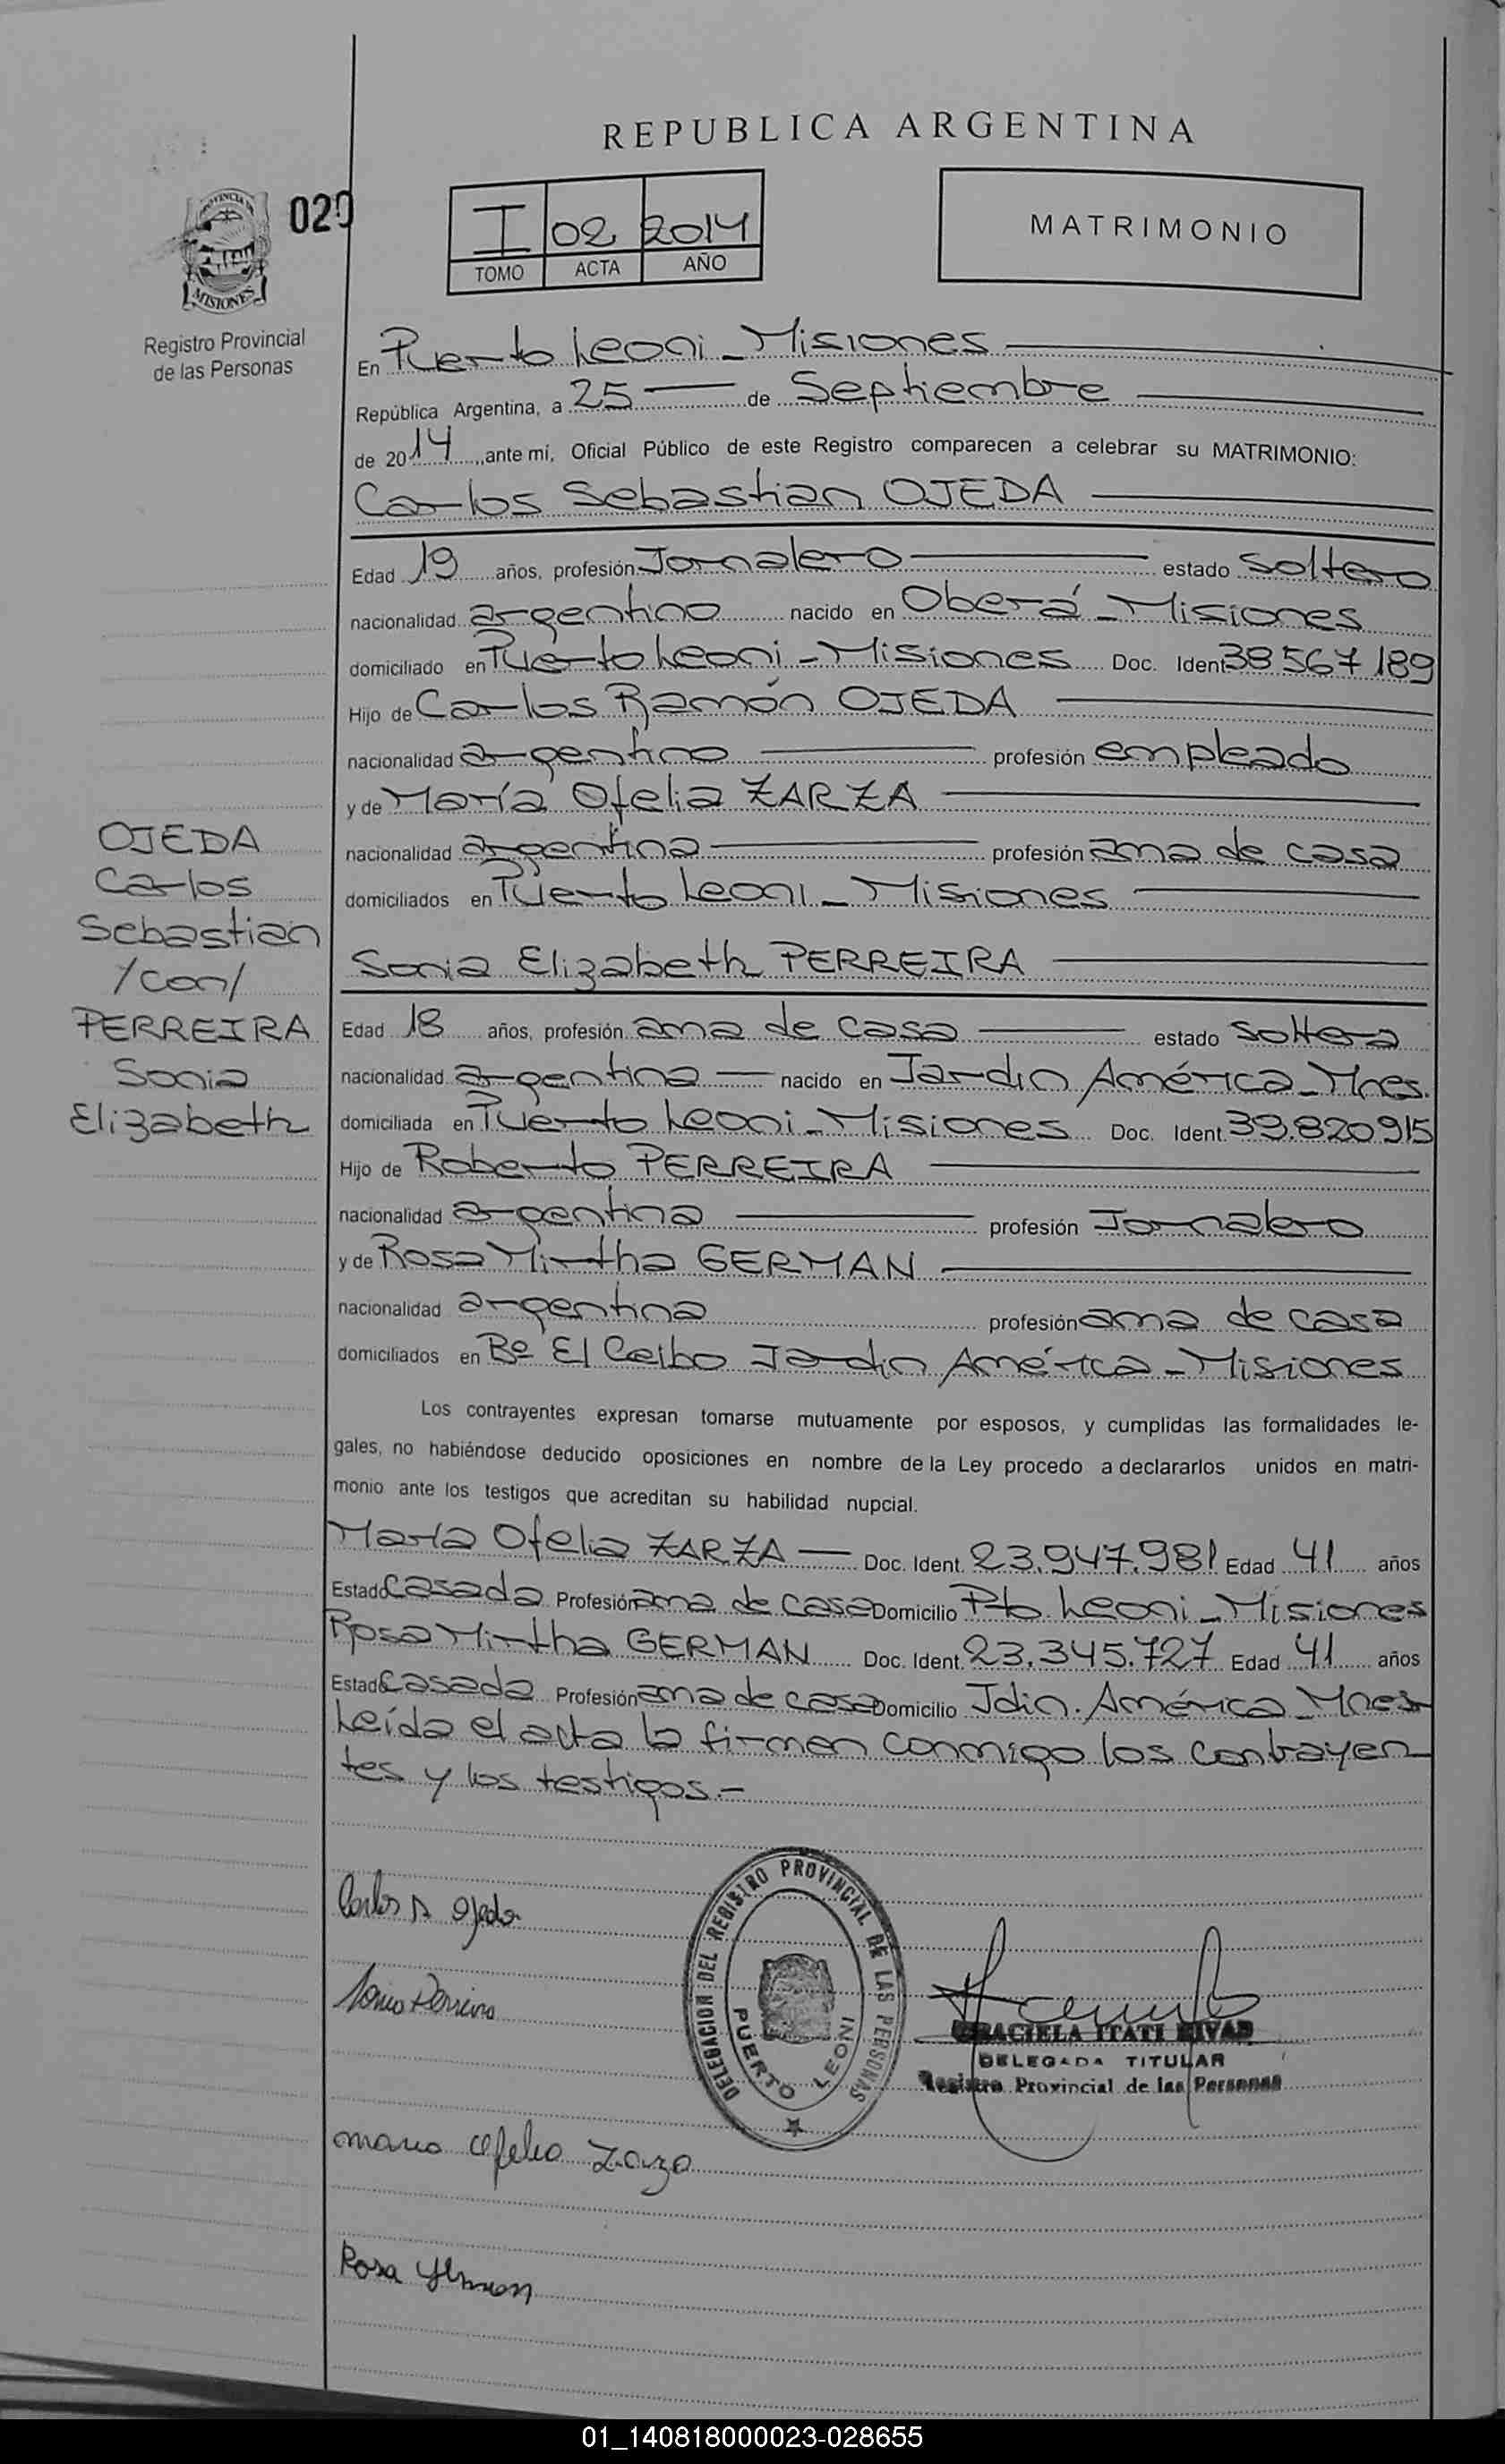 REPUBLICA ARGENTINA
PROVINCIA DE
MISIONES
020
I 02 2014
TOMO ACTA AÑO
MATRIMONIO
Registro Provincial
de las Personas
En Puerto Leoni - Misiones
República Argentina, a 25 de Septiembre
de 2014, ante mí, Oficial Público de este Registro comparecen a celebrar su MATRIMONIO:
Carlos Sebastian OJEDA
Edad 19 años, profesión Jornalero estado soltero
nacionalidad argentino nacido en Oberá - Misiones
domiciliado en Puerto Leoni - Misiones Doc. Ident. 38.567.189
Hijo de Carlos Ramón OJEDA
nacionalidad argentino profesión empleado
y de María Ofelia ZARZA
nacionalidad argentina profesión ama de casa
domiciliados en Puerto Leoni - Misiones
OJEDA
Carlos
Sebastian
/con/
PERREIRA
Sonia
Elizabeth
Sonia Elizabeth PERREIRA
Edad 18 años, profesión ama de casa estado soltera
nacionalidad argentina nacido en Jardin América - Mnes.
domiciliada en Puerto Leoni - Misiones Doc. Ident. 39.820.915
Hijo de Roberto PERREIRA
nacionalidad argentina profesión Jornalero
y de Rosa Mirtha GERMAN
nacionalidad argentina profesión ama de casa
domiciliados en Bº El Ceibo Jardin América - Misiones
Los contrayentes expresan tomarse mutuamente por esposos, y cumplidas las formalidades le-
gales, no habiéndose deducido oposiciones en nombre de la Ley procedo a declararlos unidos en matri-
monio ante los testigos que acreditan su habilidad nupcial.
María Ofelia ZARZA Doc. Ident. 23.947.981 Edad 41 años
Estado casada Profesión ama de casa Domicilio Pto. Leoni - Misiones
Rosa Mirtha GERMAN Doc. Ident. 23.345.727 Edad 41 años
Estado casada Profesión ama de casa Domicilio Jdin. América - Mnes
Leída el acta la firman conmigo los contrayen
tes y los testigos.-
Carlos S Ojeda
Sonia Perreira
DELEGACION DEL REGISTRO PROVINCIAL DE LAS PERSONAS
PUERTO LEONI
GRACIELA ITATI RIVAS
DELEGADA TITULAR
Registro Provincial de las Personas
maria Ofelia Zarza
Rosa German
01_140818000023-028655